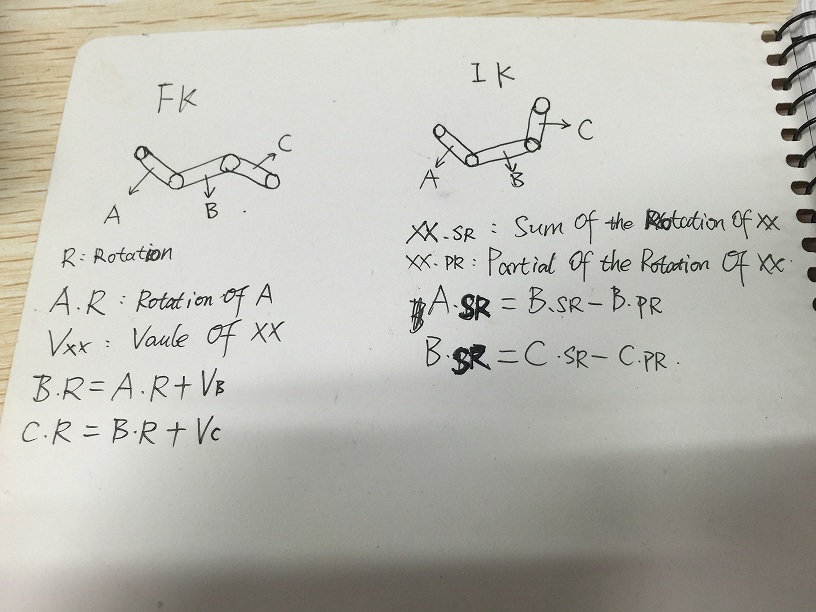 FK
A
B
C
R: Rotation
A.R : Rotation of A
Vxx : Vaule of XX
B.R = A.R + VB
C.R = B.R + Vc
IK
A
B
C
XX.SR : Sum Of the Rotation Of XX
XX.PR : Partial Of the Rotation Of XX.
A.SR = B.SR - B.PR
B.SR = C.SR - C.PR.